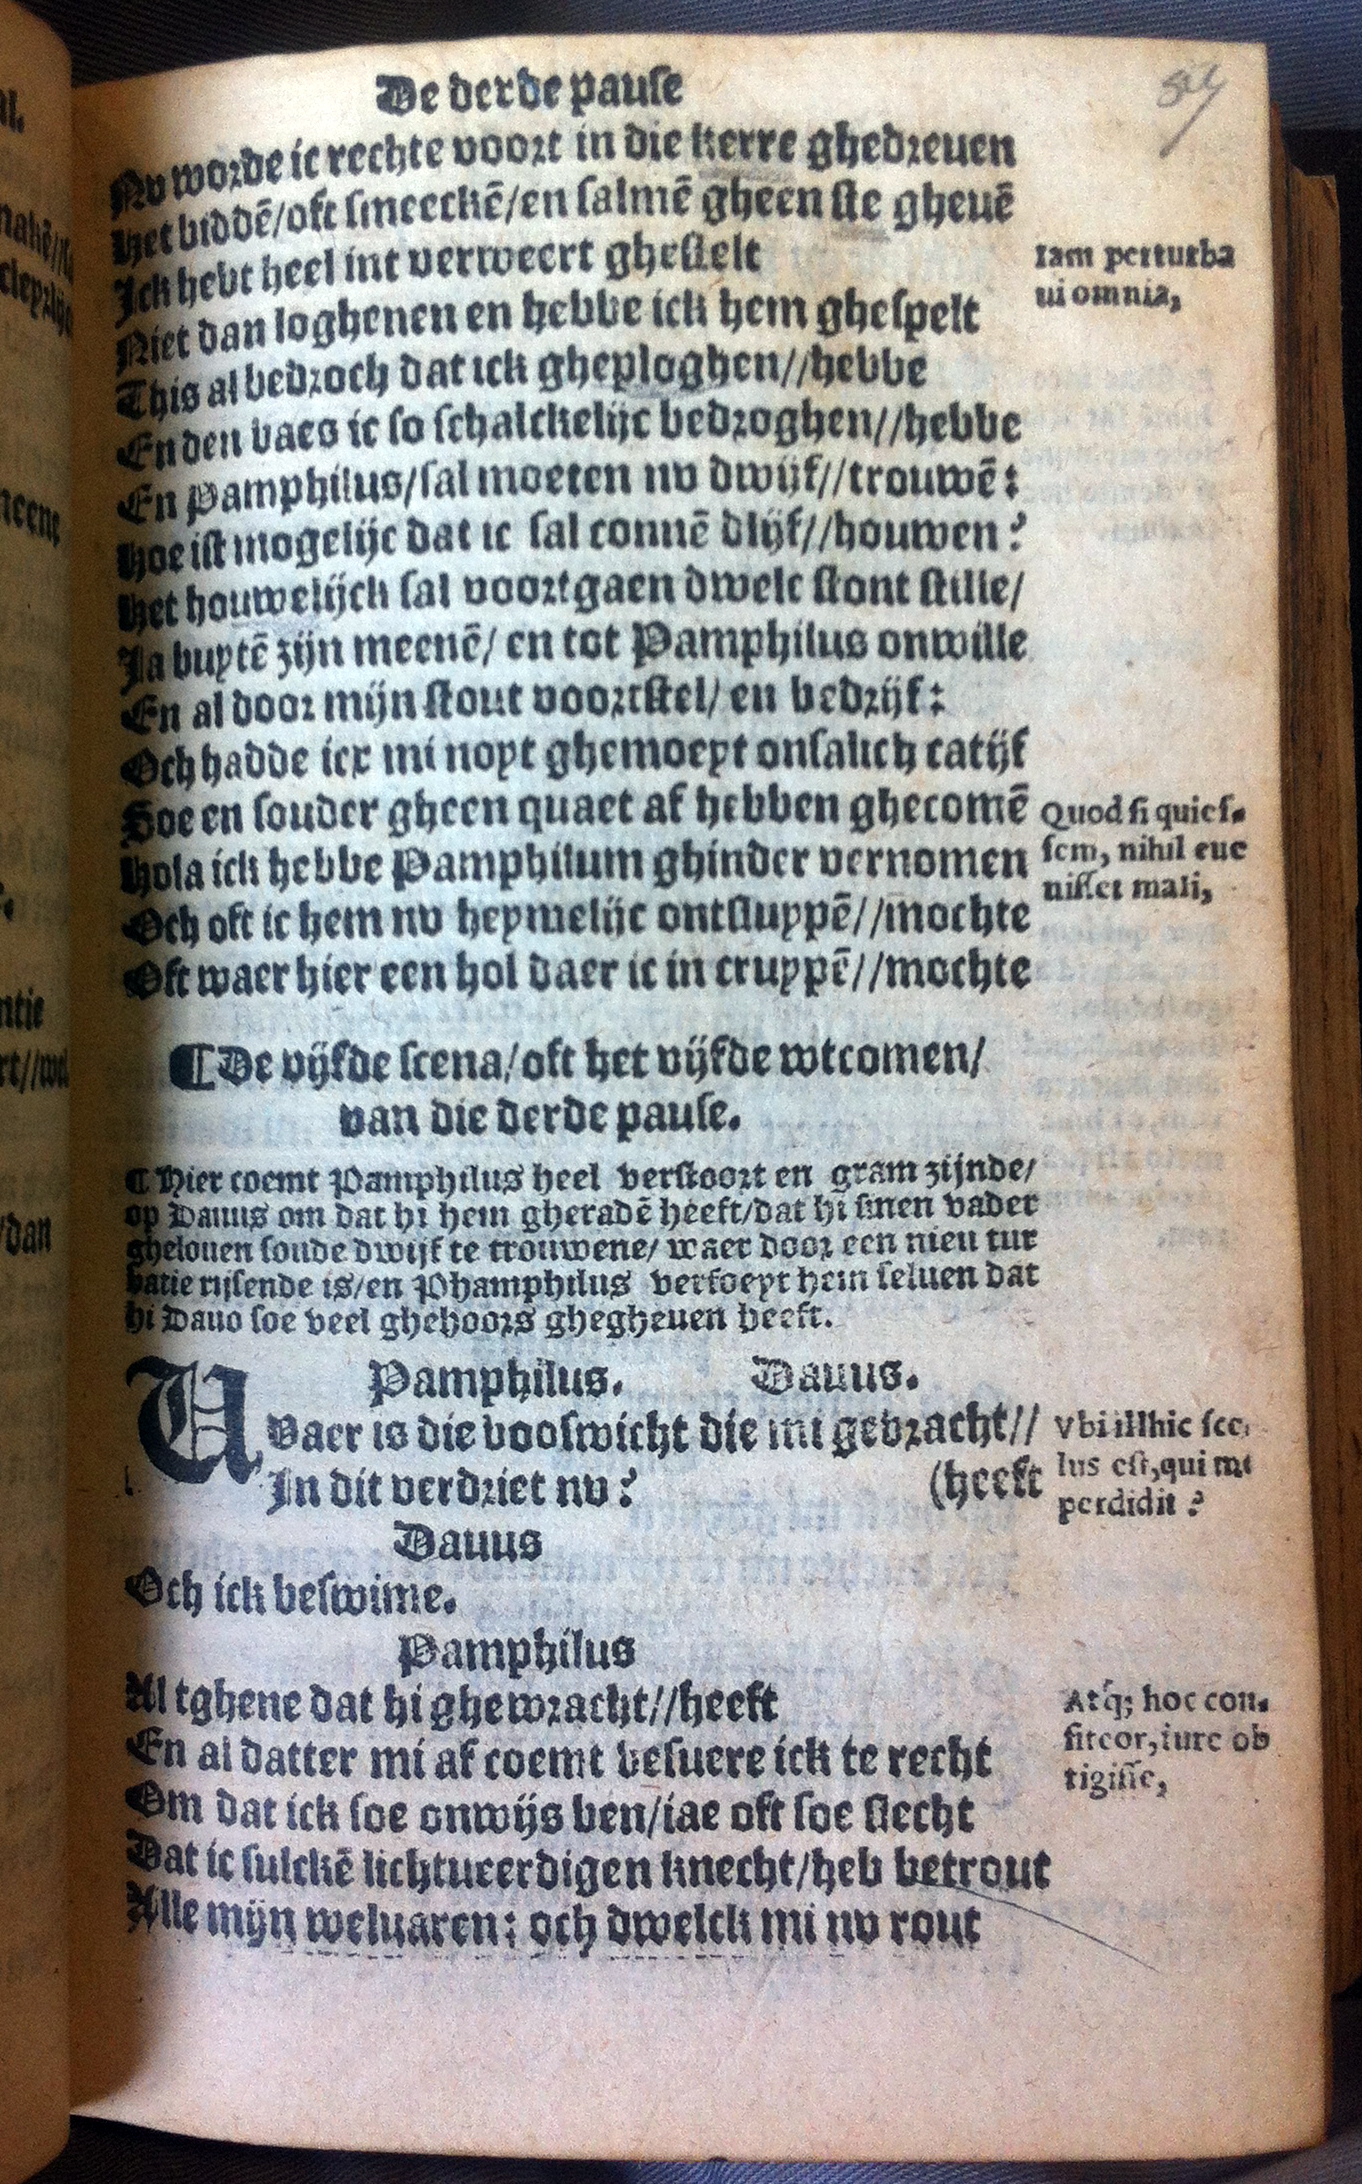 De derde pause
Nv worde ic rechte voort in die kerre ghedreuen
Het biddē/oft smeeckē/en salmē gheen ste gheuē
Ick hebt heel int verweert ghestelt
Iam perturba
ui omnia,
Niet dan loghenen en hebbe ick hem ghespelt
This al bedroch dat ick gheploghen//hebbe
En den baes ic so schalckelijc bedroghen//hebbe
En Pamphilus/sal moeten nv dwijf//trouwē:
Hoe ist mogelijc dat ic sal connē dlijf//houwen?
Het houwelijck sal voortgaen dwelc stont stille/
Ja buytē zijn meenē/ en tot Pamphilus onwille
En al door mijn stout voortstel/ en bedrijf:
Och hadde icx mi noyt ghemoeyt onsalich catijf
Soe en souder gheen quaet af hebben ghecomē
Quod si quies-
sem, nihil eue
nisset mali,
Hola ick hebbe Pamphilum ghinder vernomen
Och oft ic hem nv heymelijc ontsluppē//mochte
Oft waer hier een hol daer ic in cruypē//mochte
¶ De vijfde scena/oft het vijfde wtcomen/
van die derde pause.
¶ Hier coemt Pamphilus heel verstoort en gram zijnde/
op Dauus om dat hi hem gheradē heeft/dat hi sinen vader
ghelouen soude dwijf te trouwene/ waer door een nieu tur
batie rijsende is/en Phamphilus verfoeyt hem seluen dat
hi Dauo soe veel ghehoors ghegheuen heeft.
Pamphilus. Dauus.
VVaer is die booswicht die mi gebracht//
In dit verdriet nv? (heeft
Vbi illhic sce-
lus est,qui me
perdidit ?
Dauus
Och ick beswime.
Pamphilus
Al tghene dat hi ghewracht//heeft
En al datter mi af coemt besuere ick te recht
Atq; hoc con-
fiteor,iure ob
tigisse,
Om dat ick soe onwijs ben/iae oft soe slecht
Dat ic sulckē lichtueerdigen knecht/heb betrout
Alle mijn weluaren: och dwelck mi nv rout